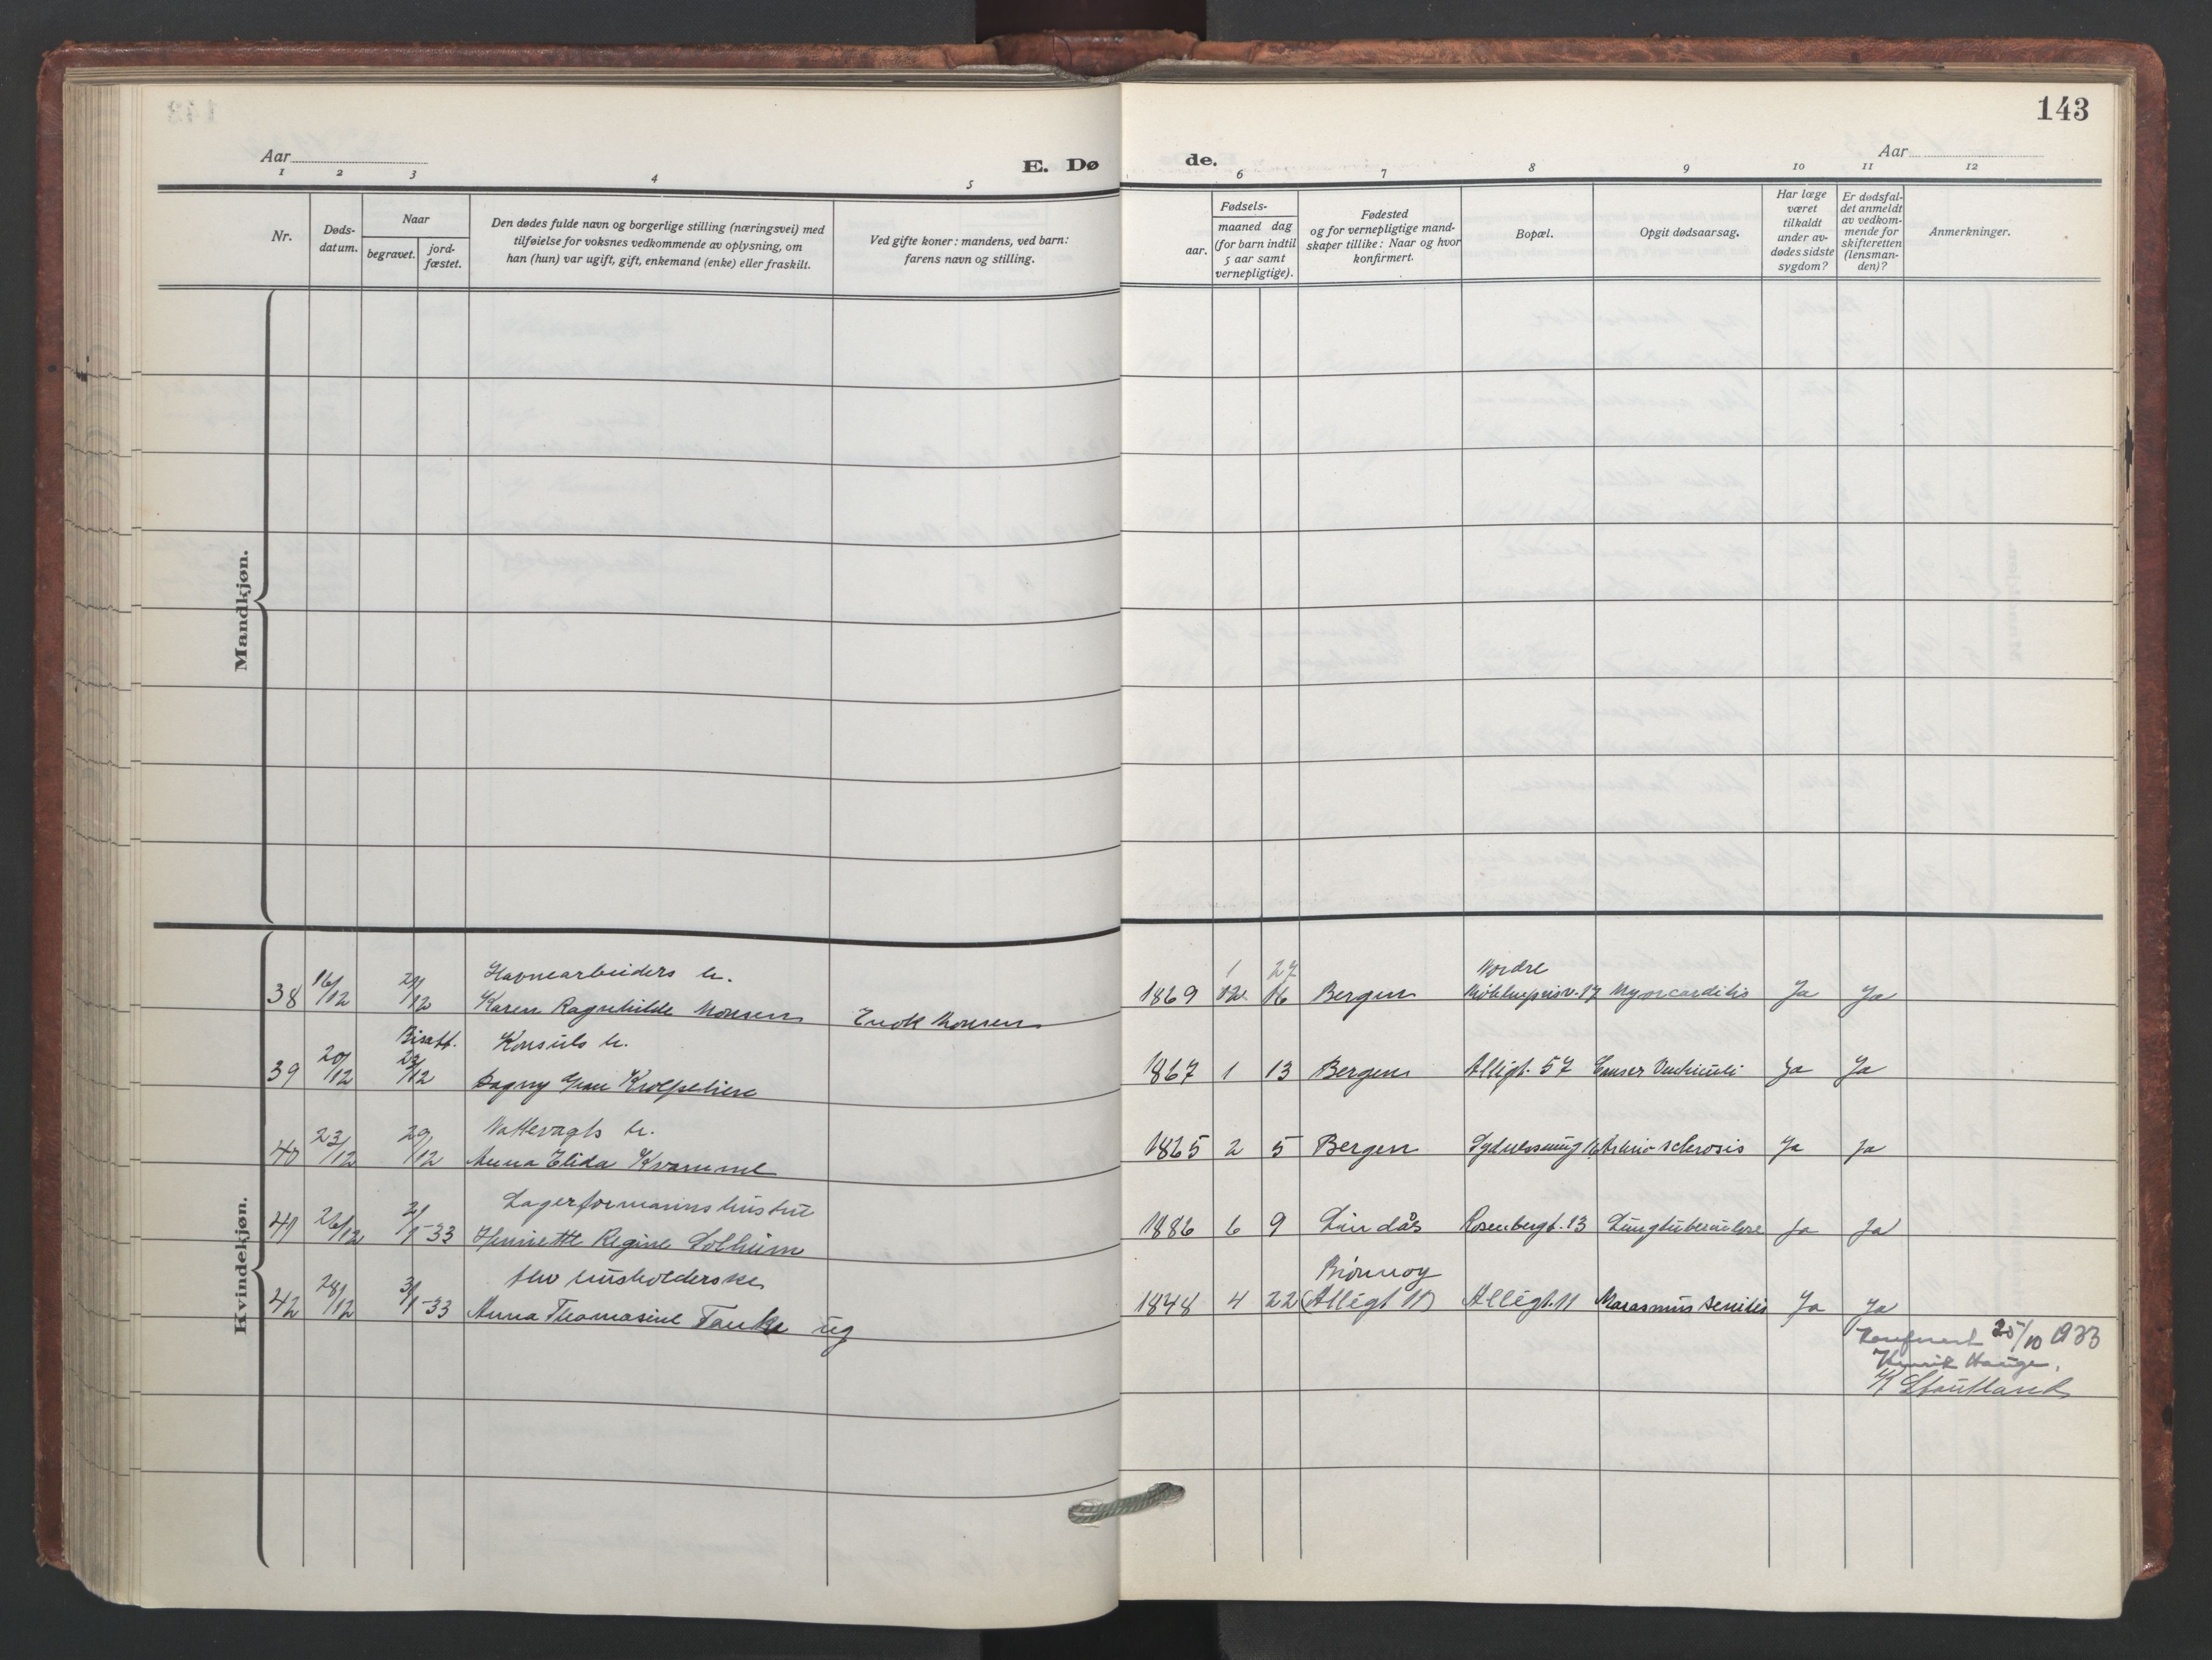 143
Aar
E. Dø
de.
Aar
1 2 3 4 5 6 7 8 9 10 11 12
Nr.
Døds-
datum.
Naar
begravet.
jord-
fæstet.
Den dødes fulde navn og borgerlige stilling (næringsvei) med
tilføielse for voksnes vedkommende av oplysning, om
han (hun) var ugift, gift, enkemand (enke) eller fraskilt.
Ved gifte koner: mandens, ved barn:
farens navn og stilling.
Fødsels-
aar.
maaned dag
(for barn indtil
5 aar samt
vernepligtige).
Fødested
og for vernepligtige mand-
skaper tillike: Naar og hvor
konfirmert.
Bopæl.
Opgit dødsaarsag.
Har læge
været
tilkaldt
under av-
dødes sidste
sygdom?
Er dødsfal-
det anmeldt
av vedkom-
mende for
skifteretten
(lensman-
den)?
Anmerkninger.
Mandkjøn.
Kvindekjøn.
Havnearbeiders h. 1 27 Nordre
38 16/12 21/12 Karen Ragnhilde Monsen Enok Monsen 1869 12 16 Bergen Møhlenprisv. 17 Myocarditis Ja Ja
Bisatt. Konsuls h.
39 20/12 23/12 Dagny Grau 1867 1 13 Bergen Allégt. 57 Cancer Ventriculi Ja Ja
Nattevagts h.
40 23/12 29/12 Anna Elida Kvamme 1865 2 5 Bergen Arteriosclerosis Ja Ja
Lagerformanns hustru
41 26/12 2/1-33 Henriette Regine Solheim 1886 6 9 Lindås Rosenbergt. 13 Lungetuberculose Ja Ja
fhv husholderske Brønnøy
42 28/12 3/1-33 Anna Thomasine Tanke ug 1848 4 22 (Allégt 11) Allégt. 11 Marasmus senilis Ja Ja
Konferert 25/10 1933
Henrik Hauge.